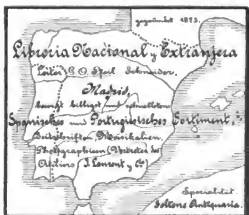 gegründet 1873.
Libreria Nacional y Extranjera
Leiter:
Madrid,
besorgt billigst und schnellstens
Spanisches und Portugiesisches Sortiment,
Zeitschriften, Musikalien,
Photographieen (Vertreter des
J. Laurent y Cª)
Specialität
Seltene Antiquaria.